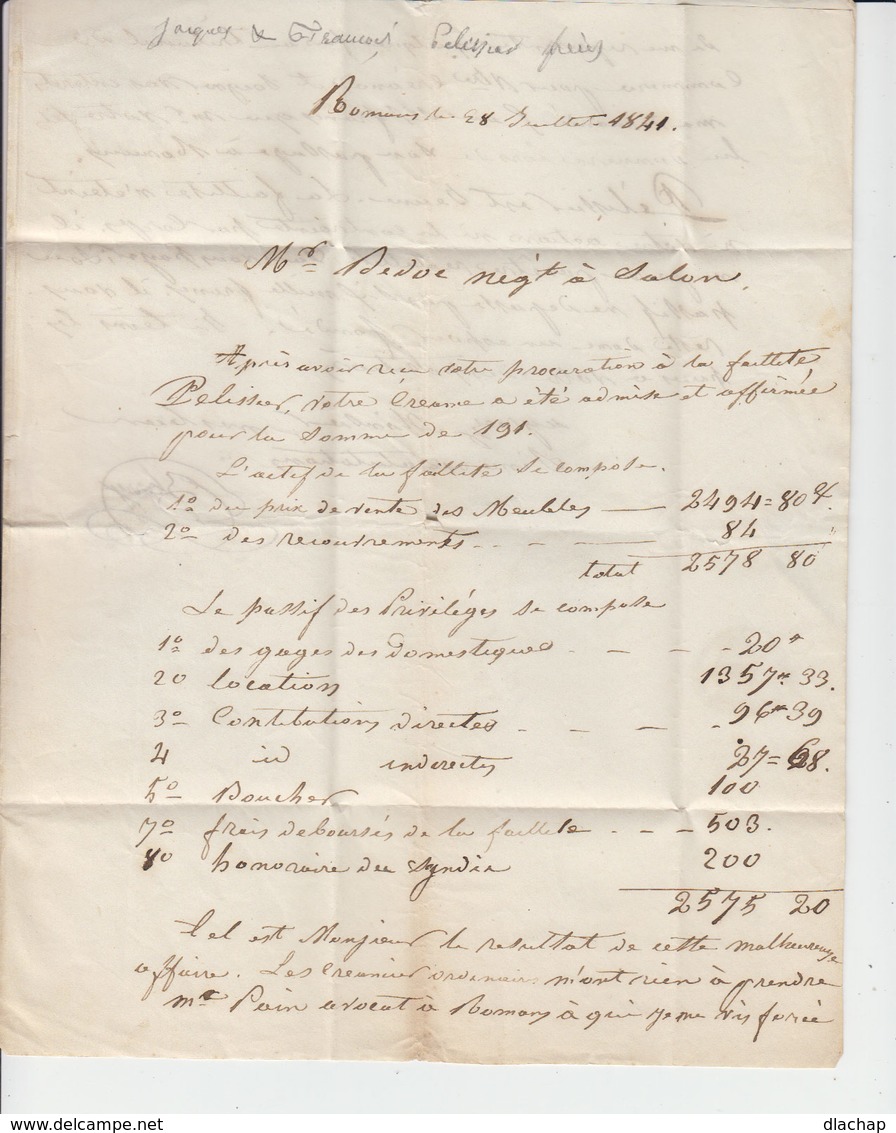 Jacques & François Pelissier frères
Romans le 28 Juillet 1841.
Mr Bedoc négt à Salon.
Après avoir reçu votre procuration à la faillite
Pelissier, votre Creance a été admise et affirmée
pour la Somme de 191.
L'actif de la faillite Se compose.
1o du prix de vente des Meubles — 2494=80c.
2o des recouvrements - - - — 84 "
total 2578 80
Le passif des Privilèges se compose
1o des gages des Domestiques - - - 20"
20 location 1357" 33.
3o Contributions directes - - - 96" 39
4 id indirectes 27=68.
5o Boucher 100
7o frais deboursés de la faillite - - - 503.
80 honoraire du Syndic 200
2575 20
Tel est Monsieur le resultat de cette malheureuse
affaire. Les Creancier ordinair. n'ont rien à prendre
Me Pain avocat à Romans à qui je me vis forcé
delcampe.net
dlachap